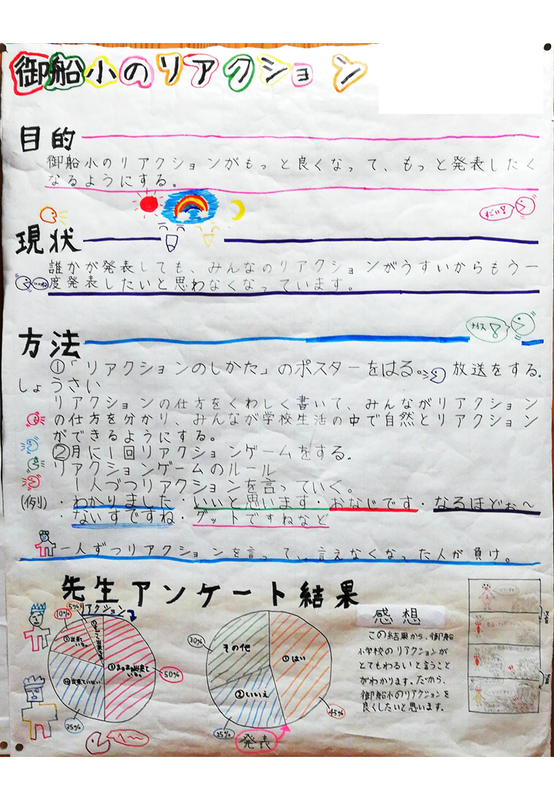 御船小のリアクション
目的
御船小のリアクションがもっと良くなって、もっと発表したく
なるようにする。
現状
誰かが発表しても、みんなのリアクションがうすいからもう一
度発表したいと思わなくなっています。
方法
①「リアクションのしかた」のポスターをはる。放送をする.
しょうさい
リアクションの仕方をくわしく書いて、みんながリアクション
の仕方を分かり、みんなが学校生活の中で自然とリアクション
ができるようにする。
②月に1回リアクションゲームをする.
リアクションゲームのルール
一人づつリアクションを言っていく。
(例) ・わかりました・いいと思います・おなじです・なるほどぉ〜
・ないすですね・グットですねなど
一人ずつリアクションを言って、言えなくなった人が負け。
先生アンケート結果
リアクション
10%
50%
25%
その他
①はい
②いいえ
30%
45%
25%
発表
感想
この結果から、御船
小学校のリアクションが
とてもわるいと言うこと
がわかります。だから、
御船小のリアクションを
良くしたいと思います。